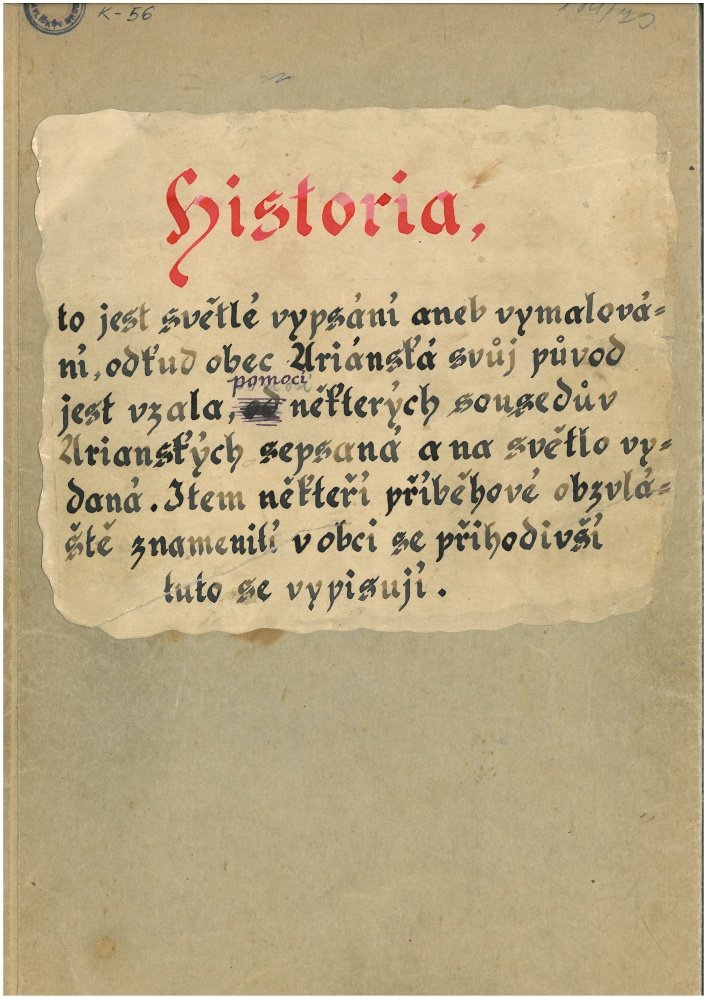 K-56
Historia,
to jest světlé vypsání aneb vymalová=
ní, odkud obec Ariánská svůj původ
pomocí
jest vzala, od některých sousedův
Arianských sepsaná a na světlo vy=
daná. Item někteří příběhové obzvlá=
ště znamenití v obci se přihodivší
tuto se vypisují.